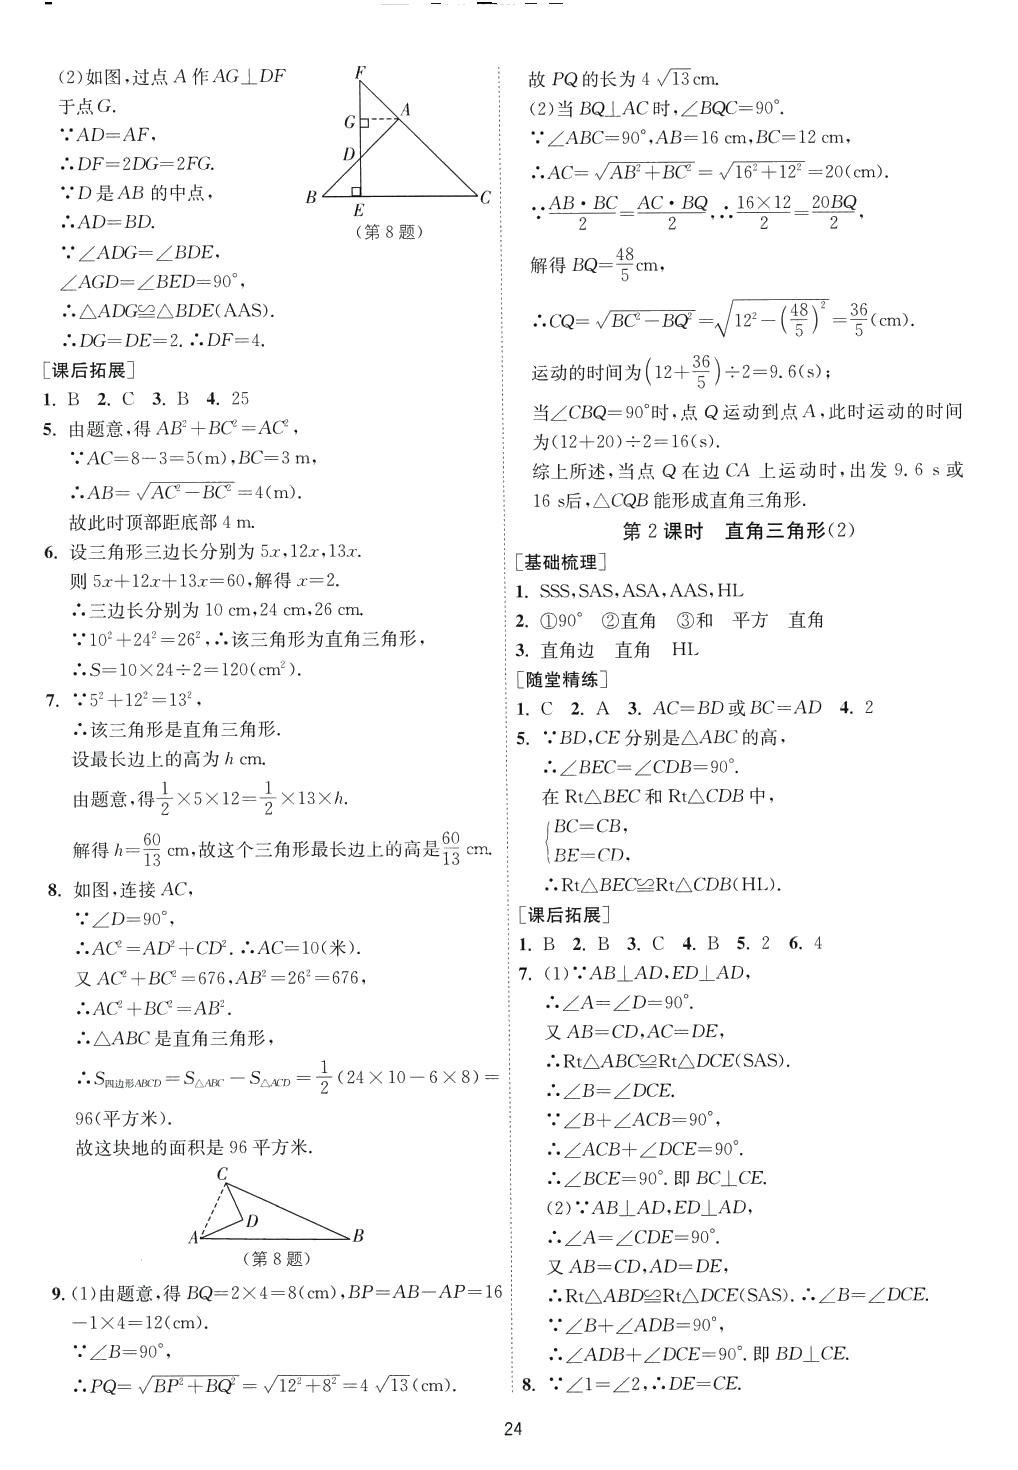 (2)如图,过点 A 作 AG⊥DF
于点 G.
∵AD=AF,
∴DF=2DG=2FG.
∵D 是 AB 的中点,
∴AD=BD.
∵∠ADG=∠BDE,
∠AGD=∠BED=90°,
∴△ADG≌△BDE(AAS).
∴DG=DE=2. ∴DF=4.
F
A
G
D
B
E
C
(第 8 题)
[课后拓展]
1. B 2. C 3. B 4. 25
5. 由题意,得 AB²+BC²=AC²,
∵AC=8-3=5(m),BC=3 m,
∴AB=√(AC²-BC²)=4(m).
故此时顶部距底部 4 m.
6. 设三角形三边长分别为 5x,12x,13x.
则 5x+12x+13x=60,解得 x=2.
∴三边长分别为 10 cm,24 cm,26 cm.
∵10²+24²=26²,∴该三角形为直角三角形,
∴S=10×24÷2=120(cm²).
7. ∵5²+12²=13²,
∴该三角形是直角三角形.
设最长边上的高为 h cm.
由题意,得 1/2×5×12=1/2×13×h.
解得 h=60/13 cm,故这个三角形最长边上的高是 60/13 cm.
8. 如图,连接 AC,
∵∠D=90°,
∴AC²=AD²+CD². ∴AC=10(米).
又 AC²+BC²=676,AB²=26²=676,
∴AC²+BC²=AB².
∴△ABC 是直角三角形,
∴S四边形ABCD=S△ABC-S△ACD=1/2(24×10-6×8)=
96(平方米).
故这块地的面积是 96 平方米.
C
D
A
B
(第 8 题)
9. (1)由题意,得 BQ=2×4=8(cm),BP=AB-AP=16
-1×4=12(cm).
∵∠B=90°,
∴PQ=√(BP²+BQ²)=√(12²+8²)=4√13(cm).
故 PQ 的长为 4√13 cm.
(2)当 BQ⊥AC 时,∠BQC=90°.
∵∠ABC=90°,AB=16 cm,BC=12 cm,
∴AC=√(AB²+BC²)=√(16²+12²)=20(cm).
∵(AB·BC)/2=(AC·BQ)/2,∴(16×12)/2=20BQ/2,
解得 BQ=48/5 cm,
∴CQ=√(BC²-BQ²)=√(12²-(48/5)²)=36/5(cm).
运动的时间为(12+36/5)÷2=9.6(s);
当∠CBQ=90°时,点 Q 运动到点 A,此时运动的时间
为(12+20)÷2=16(s).
综上所述,当点 Q 在边 CA 上运动时,出发 9.6 s 或
16 s后,△CQB 能形成直角三角形.
第 2 课时 直角三角形(2)
[基础梳理]
1. SSS,SAS,ASA,AAS,HL
2. ①90° ②直角 ③和 平方 直角
3. 直角边 直角 HL
[随堂精练]
1. C 2. A 3. AC=BD 或 BC=AD 4. 2
5. ∵BD,CE 分别是△ABC 的高,
∴∠BEC=∠CDB=90°.
在 Rt△BEC 和 Rt△CDB 中,
{BC=CB,
BE=CD,
∴Rt△BEC≌Rt△CDB(HL).
[课后拓展]
1. B 2. B 3. C 4. B 5. 2 6. 4
7. (1)∵AB⊥AD,ED⊥AD,
∴∠A=∠D=90°.
又 AB=CD,AC=DE,
∴Rt△ABC≌Rt△DCE(SAS).
∴∠B=∠DCE.
∵∠B+∠ACB=90°,
∴∠ACB+∠DCE=90°.
∴∠BCE=90°. 即 BC⊥CE.
(2)∵AB⊥AD,ED⊥AD,
∴∠A=∠CDE=90°.
又 AB=CD,AD=DE,
∴Rt△ABD≌Rt△DCE(SAS). ∴∠B=∠DCE.
∵∠B+∠ADB=90°,
∴∠ADB+∠DCE=90°. 即 BD⊥CE.
8. ∵∠1=∠2,∴DE=CE.
24